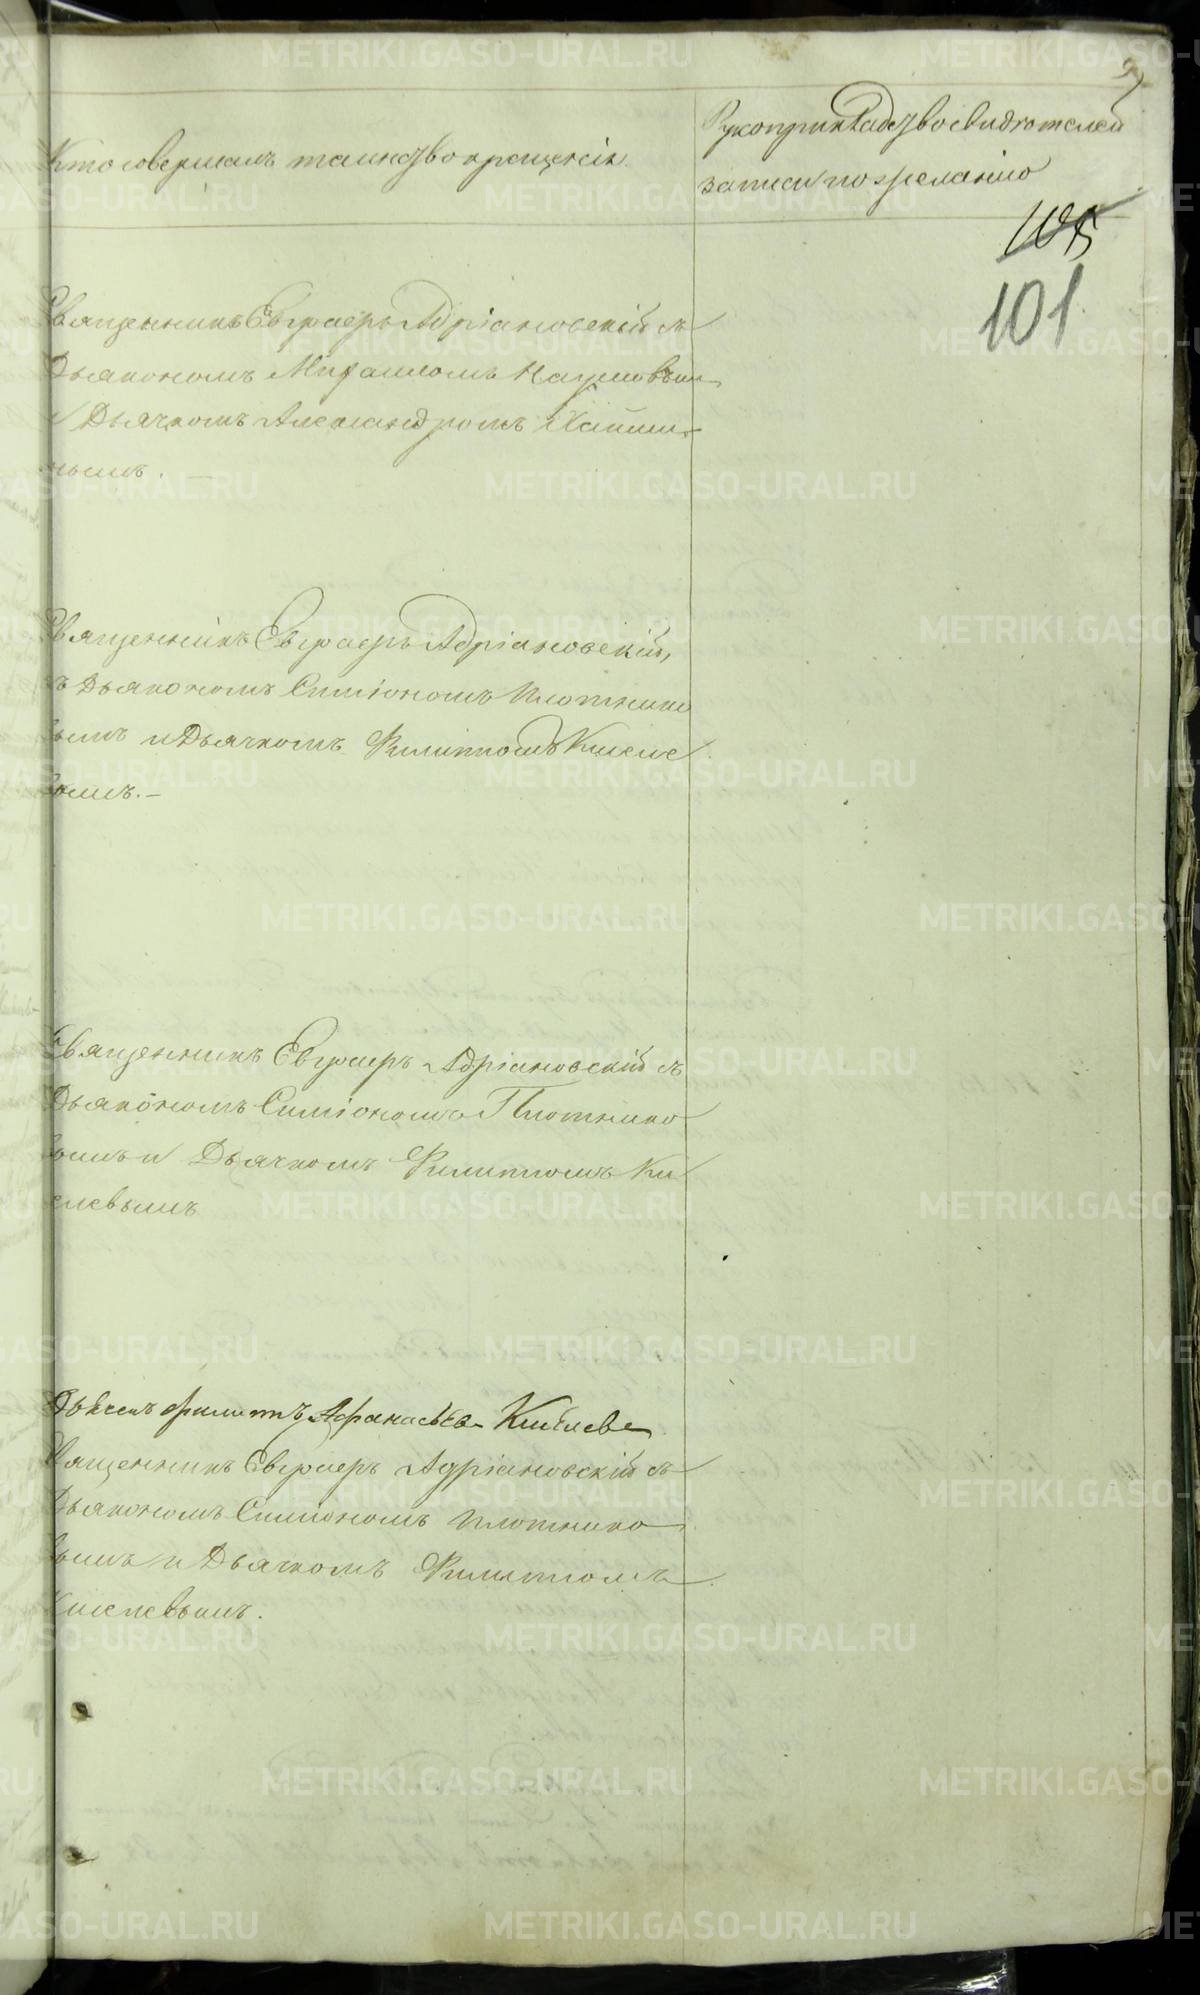 Кто совершалъ таинство крещенія
Рукоприкладство свидѣтелей
записи по желанію
105
101
Священникъ Евграфъ Адріановскій съ
Дьякономъ Михаиломъ Наумовым
и Дьячкомъ Александромъ
нымъ. —
Священникъ Евграфъ Адріановскій,
съ Дьякономъ Симіономъ Плотнико
вымъ и Дьячкомъ Филиппомъ Киселе
вымъ. —
Священникъ Евграфъ Адріановскій съ
Дьякономъ Симіономъ Плотнико
вымъ и Дьячкомъ Филиппомъ Ки
селевымъ
Дьячекъ Филиппъ Афанасьевъ Киселевъ
Священникъ Евграфъ Адріановскій съ
Дьякономъ Симіономъ Плотнико
вымъ и Дьячкомъ Филиппомъ
Киселевымъ.
METRIKI.GASO-URAL.RU